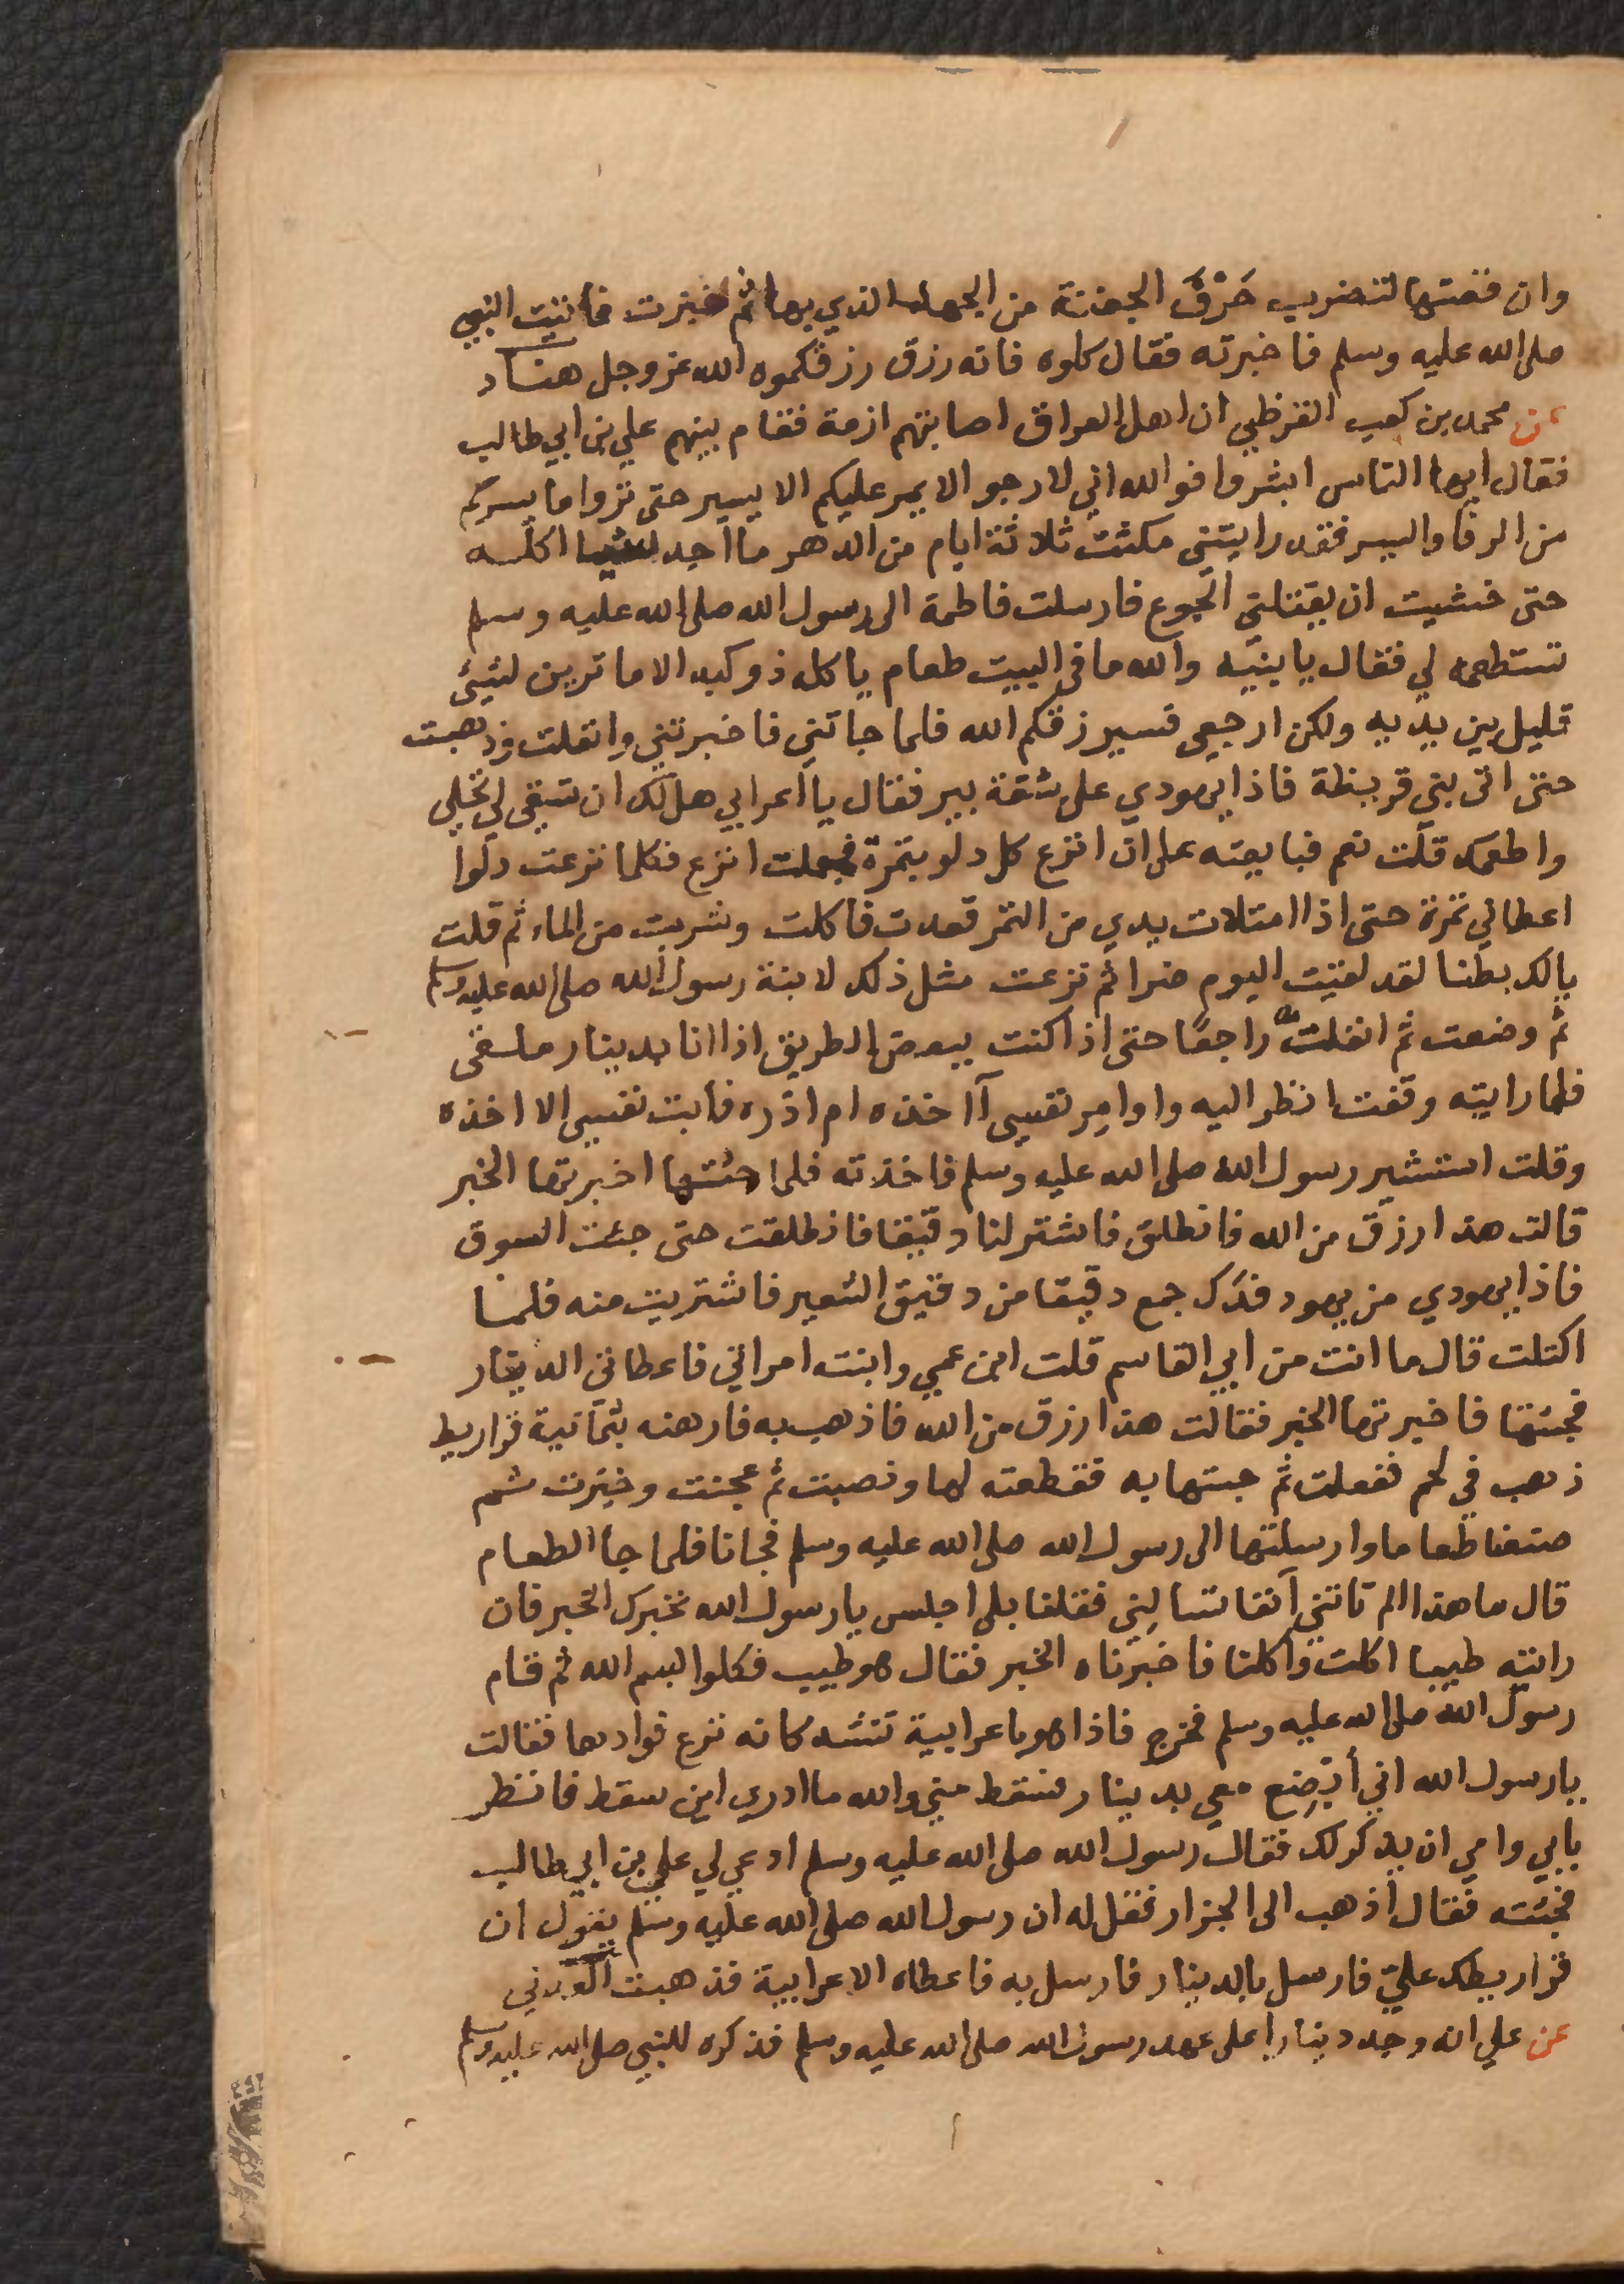 وان قصتها لتضرب حَرْفَ الجفنة من الجهد الذي بها ثم خبزت فاتيت النبي
صلى الله عليه وسلم فاخبرته فقال كلوه فانه رزق رزقكموه الله عز وجل هناد
عن محمد بن كعب القرظي ان اهل العراق اصابتهم ازمة فقام بينهم علي بن ابي طالب
فقال ايها الناس ابشروا فوالله اني لارجو الا يمر عليكم الا يسير حتى تروا ما يسركم
من الرفا واليسر فقد رايتني مكثت ثلاثة ايام من الدهر ما اجد شيا اكله
حتى خشيت ان يقتلني الجوع فارسلت فاطمة الى رسول الله صلى الله عليه وسلم
تستطعمه لي فقال يا بنيه والله ما في البيت طعام ياكله ذو كبد الا ما ترين لشيئ
قليل بين يديه ولكن ارجعي فسيرزقكم الله فلما جاتني فاخبرتني وانفلت وذهبت
حتى اتى بني قريظة فاذا يهودي على شقة بير فقال يا اعرابي هل لك ان تسقي لي نخلي
واطعمك قلت نعم فبايعته على ان انزع كل دلو بتمرة فجعلت انزع فكلما نزعت دلوا
اعطاني تمرة حتى اذا امتلات يدي من التمر قعدت فاكلت وشربت من الماء ثم قلت
يالك بطنا لقد لقيت اليوم ضرا ثم نزعت مثل ذلك لابنة رسول الله صلى الله عليه وسلم
ثم وضعت ثم انفلت راجعًا حتى اذا كنت ببعض الطريق اذا انا بدينار ملقى
فلما رايته وقفت انظر اليه واوامر نفسي آاخذه ام اذره فابت نفسي الا اخذه
وقلت استشير رسول الله صلى الله عليه وسلم فاخذته فلما جئتها اخبرتها الخبر
قالت هذا رزق من الله فانطلق فاشتر لنا دقيقا فانطلقت حتى جئت السوق
فاذا يهودي من يهود فدك جمع دقيقا من دقيق الشعير فاشتريت منه فلما
اكتلت قال ما انت من ابي القاسم قلت ابن عمي وابنت امراتي فاعطاني الدينار
فجئتها فاخبرتها الخبر فقالت هذا رزق من الله فاذهب به فارهنه بثمانية قراريط
ذهب في لحم ففعلت ثم جيتها به فقطعته لها ونصبت ثم عجنت وخبزت ثم
صنعنا طعاما وارسلتها الى رسول الله صلى الله عليه وسلم فجانا فلما جا الطعام
قال ما هذا الم تاتني آنفا تسالني فقلنا بلى اجلس يا رسول الله نخبرك الخبر فان
رايته طيبا اكلت واكلنا فاخبرناه الخبر فقال هو طيب فكلوا بسم الله ثم قام
رسول الله صلى الله عليه وسلم فخرج فاذا هو باعرابية تشتد كانه نزع فوادها فقالت
يا رسول الله اني أبضع معي بدينار فسقط مني والله ما ادري اين سقط فانظر
بابي وامي ان يذكر لك فقال رسول الله صلى الله عليه وسلم ادعي لي علي بن ابي طالب
فجئته فقال أذهب الى الجزار فقل له ان رسول الله صلى الله عليه وسلم يقول ان
قراريطك عليّ فارسل بالدينار فارسل به فاعطاه الاعرابية فذهبت العدني
عن علي انه وجد دينارا على عهد رسول الله صلى الله عليه وسلم فذكره للنبي صلى الله عليه وسلم